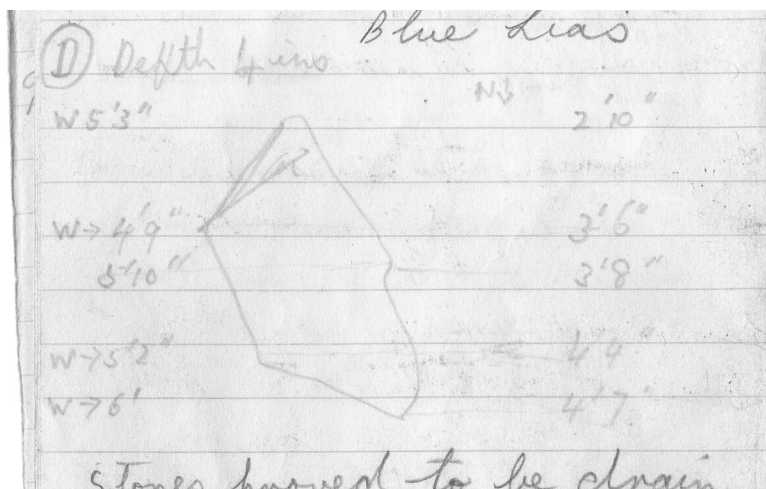 Blue Lias
D Depth 4 ins
W 5'3" 2'10"
W→ 4'9" 3'6"
5'10" 3'8"
W→5'2" 4'4"
W→6' 4'7'
Stones proved to be drain